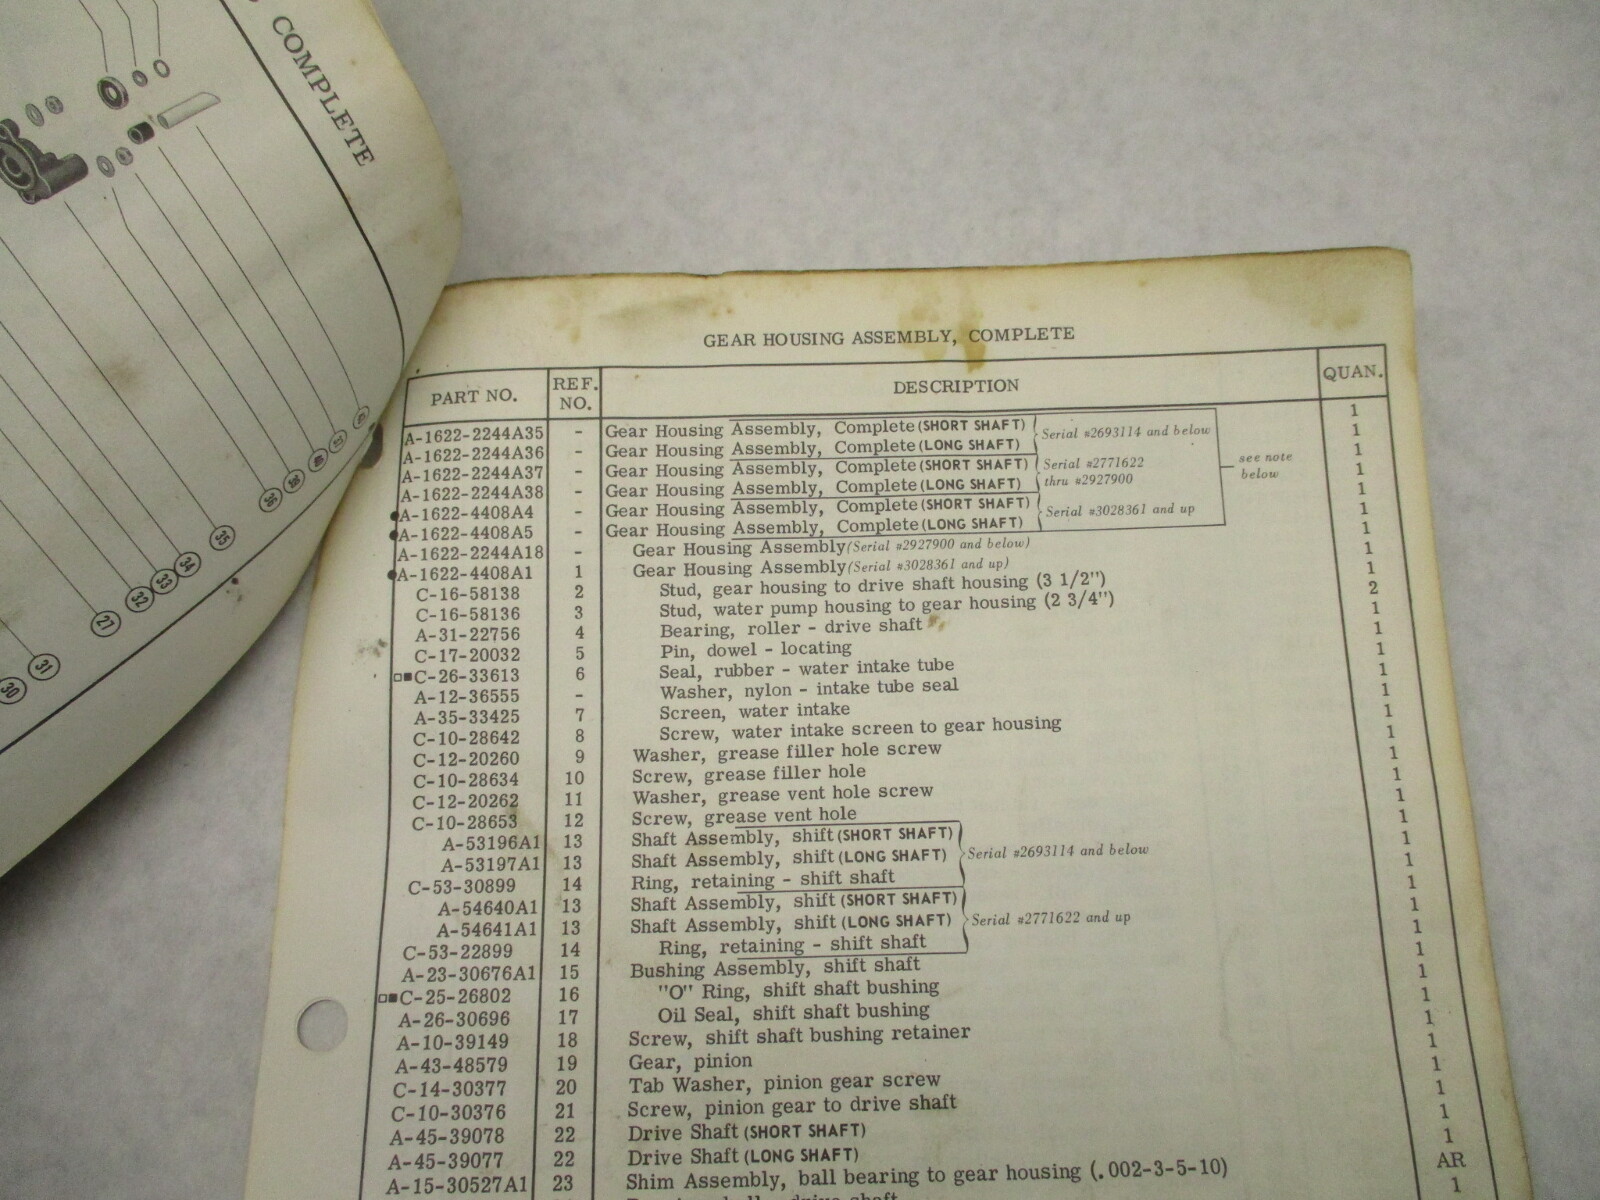 COMPLETE
35
36
38
40
27
32
33
34
35
31
30
GEAR HOUSING ASSEMBLY, COMPLETE
PART NO. REF. NO. DESCRIPTION QUAN.
A-1622-2244A35 - Gear Housing Assembly, Complete (SHORT SHAFT) 1
A-1622-2244A36 - Gear Housing Assembly, Complete (LONG SHAFT) Serial #2693114 and below 1
A-1622-2244A37 - Gear Housing Assembly, Complete (SHORT SHAFT) Serial #2771622 1
A-1622-2244A38 - Gear Housing Assembly, Complete (LONG SHAFT) thru #2927900 1
see note below
●A-1622-4408A4 - Gear Housing Assembly, Complete (SHORT SHAFT) 1
●A-1622-4408A5 - Gear Housing Assembly, Complete (LONG SHAFT) Serial #3028361 and up 1
A-1622-2244A18 - Gear Housing Assembly (Serial #2927900 and below) 1
●A-1622-4408A1 1 Gear Housing Assembly (Serial #3028361 and up) 1
C-16-58138 2 Stud, gear housing to drive shaft housing (3 1/2") 2
C-16-58136 3 Stud, water pump housing to gear housing (2 3/4") 1
A-31-22756 4 Bearing, roller - drive shaft 1
C-17-20032 5 Pin, dowel - locating 1
□■C-26-33613 6 Seal, rubber - water intake tube 1
A-12-36555 - Washer, nylon - intake tube seal 1
A-35-33425 7 Screen, water intake 1
C-10-28642 8 Screw, water intake screen to gear housing 1
C-12-20260 9 Washer, grease filler hole screw 1
C-10-28634 10 Screw, grease filler hole 1
C-12-20262 11 Washer, grease vent hole screw 1
C-10-28653 12 Screw, grease vent hole 1
A-53196A1 13 Shaft Assembly, shift (SHORT SHAFT) 1
A-53197A1 13 Shaft Assembly, shift (LONG SHAFT) Serial #2693114 and below 1
C-53-30899 14 Ring, retaining - shift shaft 1
A-54640A1 13 Shaft Assembly, shift (SHORT SHAFT) 1
A-54641A1 13 Shaft Assembly, shift (LONG SHAFT) Serial #2771622 and up 1
C-53-22899 14 Ring, retaining - shift shaft 1
A-23-30676A1 15 Bushing Assembly, shift shaft 1
□■C-25-26802 16 "O" Ring, shift shaft bushing 1
A-26-30696 17 Oil Seal, shift shaft bushing 1
A-10-39149 18 Screw, shift shaft bushing retainer 1
A-43-48579 19 Gear, pinion 1
C-14-30377 20 Tab Washer, pinion gear screw 1
C-10-30376 21 Screw, pinion gear to drive shaft 1
A-45-39078 22 Drive Shaft (SHORT SHAFT) 1
A-45-39077 22 Drive Shaft (LONG SHAFT) 1
A-15-30527A1 23 Shim Assembly, ball bearing to gear housing (.002-3-5-10) AR
1